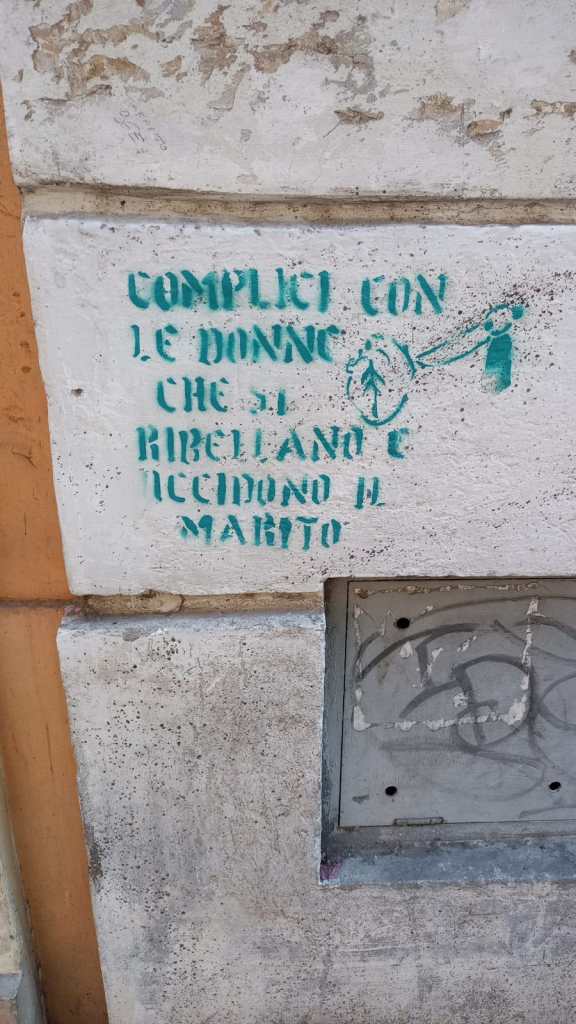 COMPLICI CON
LE DONNE
CHE SI
RIBELLANO E
UCCIDONO IL
MARITO